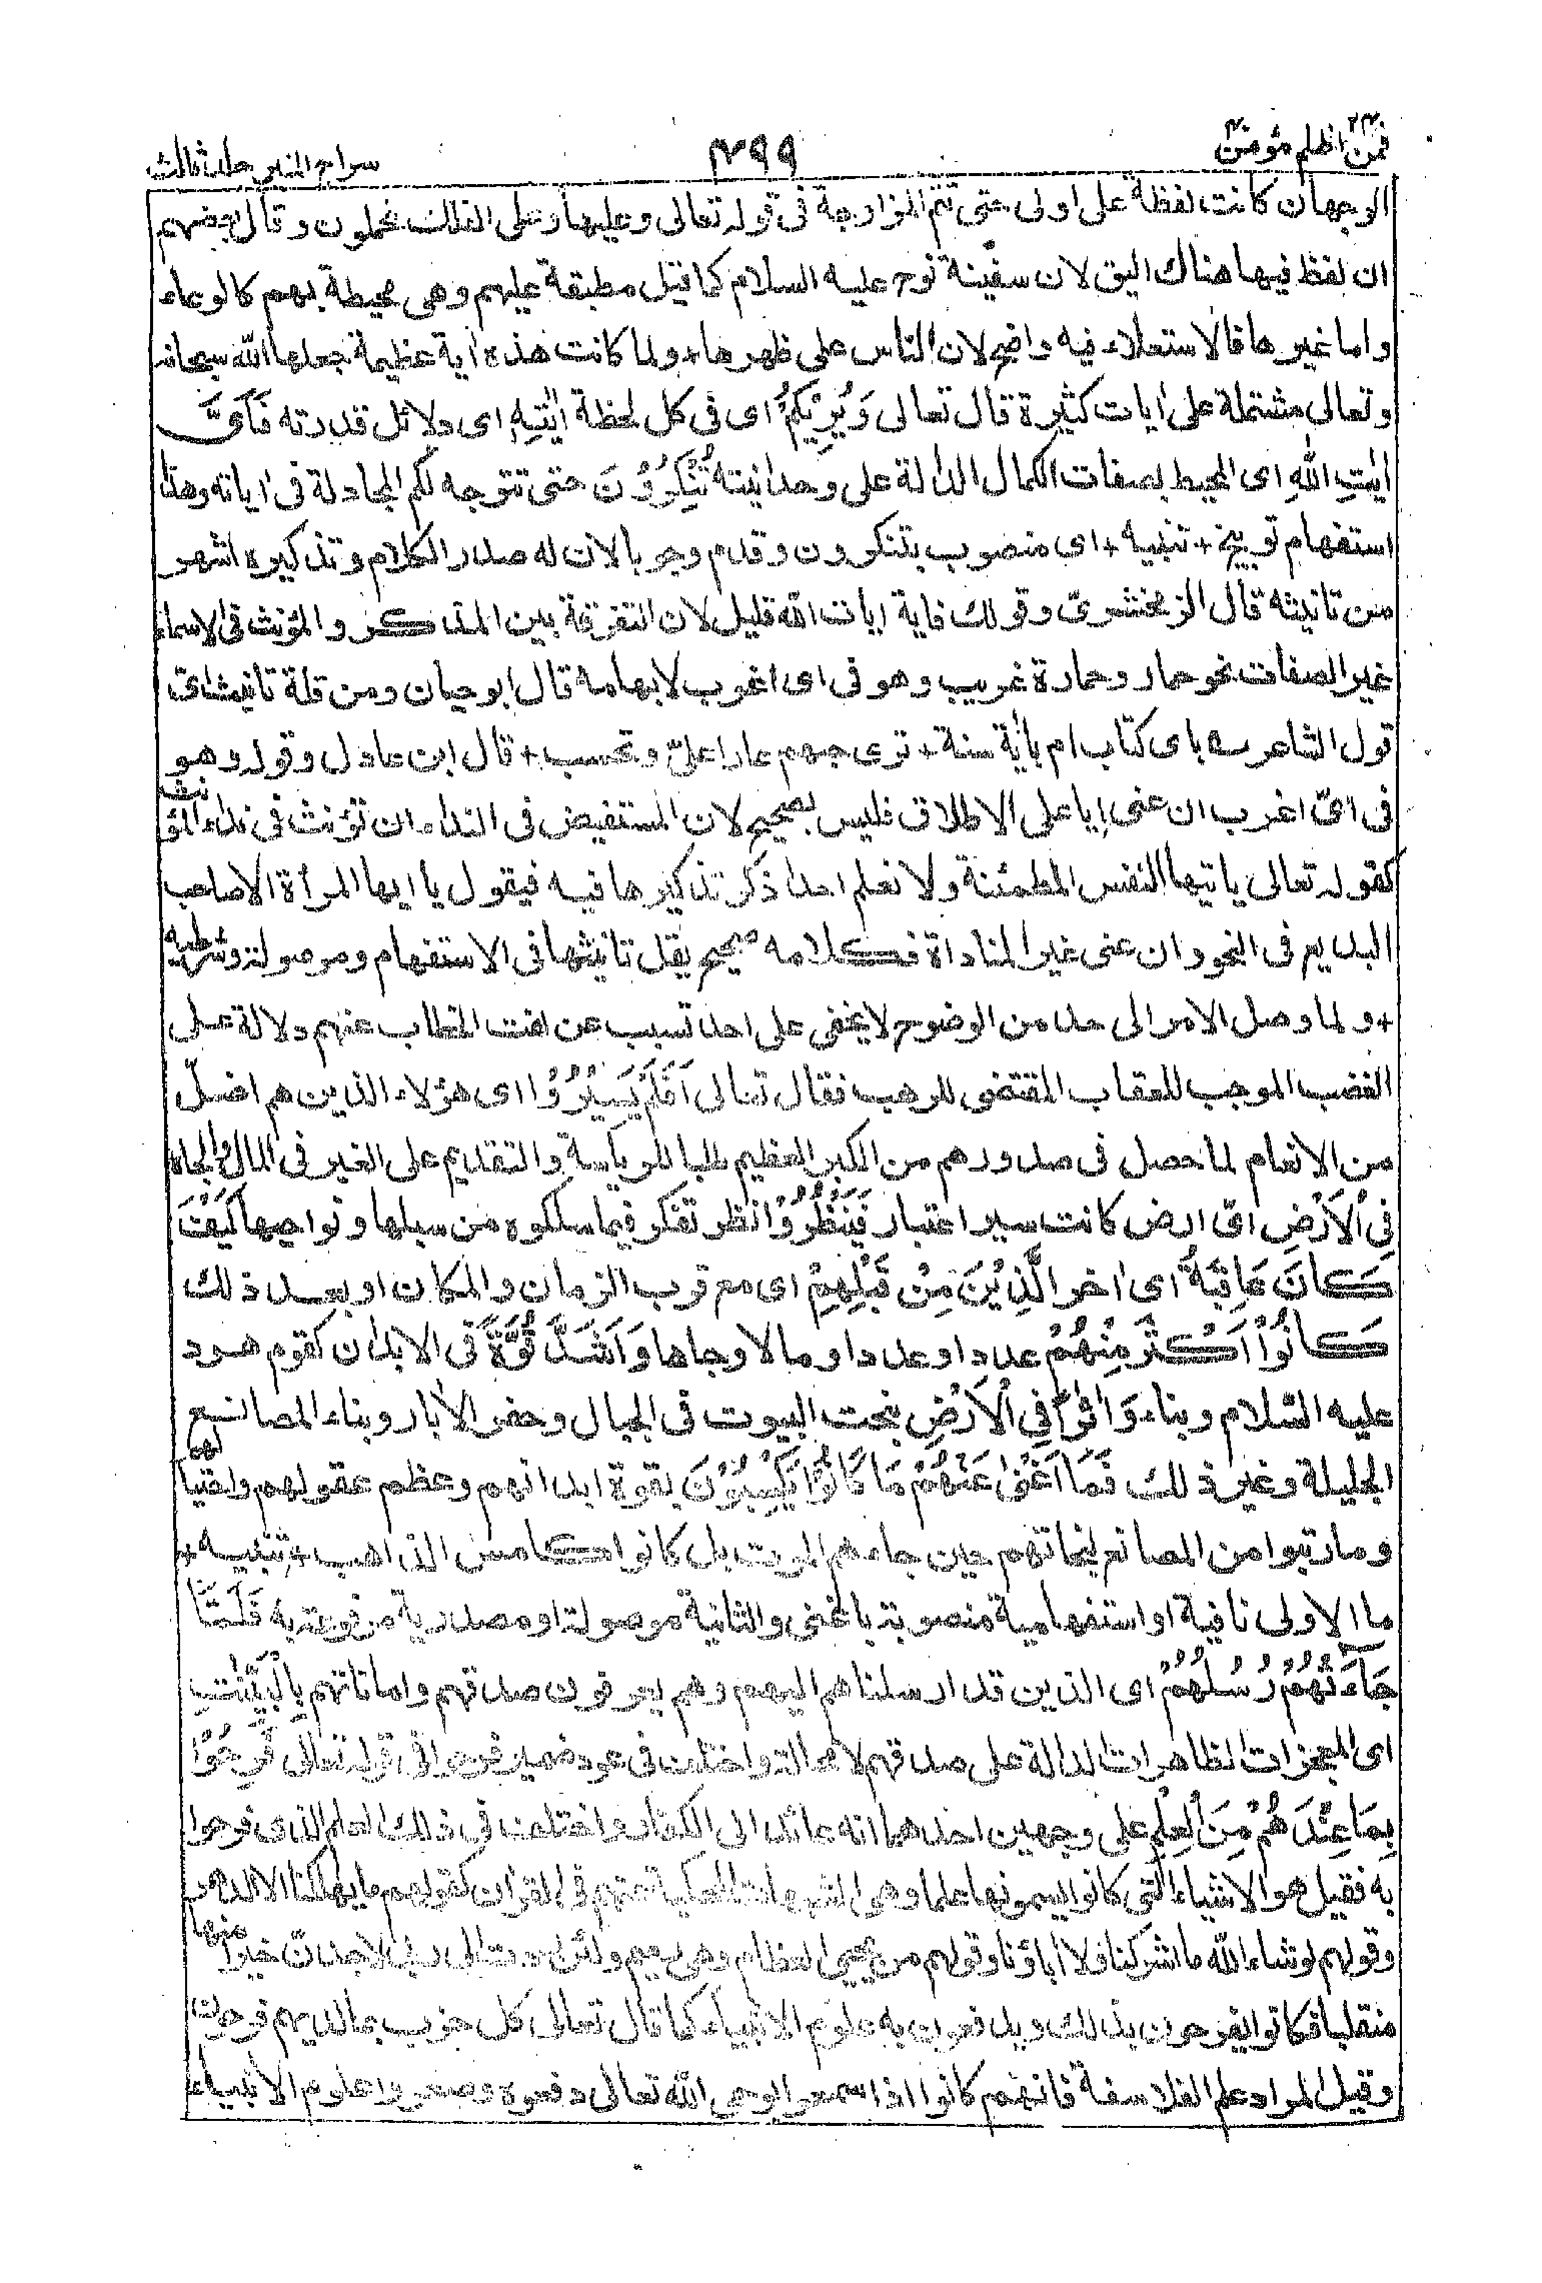 فمن اظلم ٢٤ مؤمن ٤٠
٤٩٩
سراج المنير جلد ثالث
الوجهان كانت لفظة على اولى حتى تتم المزاوجة فى قوله تعالى وعليها وعلى الفلك تحملون وقال بعضهم
ان لفظ فيها هناك اليق لان سفينة نوح عليه السلام كما قيل مطبقة عليهم وهى محيطة بهم كالوعاء
واما غيرها فالاستعلاء فيه واضح لان الناس على ظهرها + ولما كانت هذه اٰية عظيمة جعلها الله سبحانه
وتعالى مشتملة على اٰيات كثيرة قال تعالى وَيُرِيْكُمْ اى فى كل لحظة اٰيٰتِهٖ اى دلائل قدرته فَاَىَّ
اٰيٰتِ اللّٰهِ اى المحيط بصفات الكمال الدالة على وحدانيته تُنْكِرُوْنَ حتى تتوجه لكم المجادلة فى اٰياته وهذا
استفهام توبيخ + تنبيه + اى منصوب بتنكرون وقدم وجوبا لان له صدر الكلام وتذكيره اشهر
من تانيثه قال الزمخشرى وقولك فاية اٰيات الله قليل لان التفرقة بين المذكر والمؤنث فى الاسماء
غير الصفات نحو حمار وحمارة غريب وهو فى اى اغرب لابهامه قال ابو حيان ومن قلة تانيث اىّ
قول الشاعر ؎ باى كتاب ام باٰية سنة + ترى حبهم عارا علىّ وتحسب + قال ابن عادل وقوله وهو
فى اىّ اغرب ان عنى ايا على الاطلاق فليس بصحيح لان المستفيض فى النداء ان تؤنث فى نداء المؤنث
كقوله تعالى ياايتها النفس المطمئنة ولا نعلم احدا ذكر تذكيرها فيه فيقول يا ايها المرأة الا صاحب
البديع فى النحو وان عنى غير المناداة فكلامه صحيح يقل تانيثها فى الاستفهام وموصولة وشرطية
+ ولما وصل الامر الى حد من الوضوح لا يخفى على احد تسبب عن لفت الخطاب عنهم دلالة على
الغضب الموجب للعقاب المقتضى للرهب فقال تعالى اَفَلَمْ يَسِيْرُوْا اى هؤلاء الذين هم اضلّ
من الانعام لما حصل فى صدورهم من الكبر العظيم طلبا للرياسة والتقديم على الغير فى المال والجاه
فِى الْاَرْضِ اىّ ارض كانت سير اعتبار فَيَنْظُرُوْا نظر تفكر فيما سلكوه من سبلها ونواحيها كَيْفَ
كَانَ عَاقِبَةُ اى اٰخر الَّذِيْنَ مِنْ قَبْلِهِمْ اى مع قرب الزمان والمكان او بعد ذلك
كَانُوْا اَكْثَرَ مِنْهُمْ عددا وعددا ومالا وجاها وَاَشَدَّ قُوَّةً فى الابدان كقوم هود
عليه السلام وبناء وَاٰثَارًا فِى الْاَرْضِ بنحت البيوت فى الجبال وحفر الاٰبار وبناء المصانع
الجليلة وغير ذلك فَمَا اَغْنٰى عَنْهُمْ مَا كَانُوْا يَكْسِبُوْنَ بقوة ابدانهم وعظم عقولهم واحتيالهم
وما رتبوا من المصانع لنجاتهم حين جاءهم الموت بل كانوا كامس الذاهب + تنبيه +
ما الاولى نافية او استفهامية منصوبة باغنى والثانية موصولة او مصدرية مرفوعة به فَلَمَّا
جَآءَتْهُمْ رُسُلُهُمْ اى الذين قد ارسلناهم اليهم وهم يعرفون صدقهم وامانتهم بِالْبَيِّنٰتِ
اى المعجزات الظاهرات الدالة على صدقهم لا محالة واختلف فى عود ضمير فرحوا فى قوله تعالى فَرِحُوْا
بِمَا عِنْدَهُمْ مِنَ الْعِلْمِ على وجهين احدهما انه عائد الى الكفار واختلف فى ذلك العلم الذى فرحوا
به فقيل هو الاشياء التى كانوا يسمونها علما وهى الشبهات المحكية عنهم فى القراٰن كقولهم ما يهلكنا الا الدهر
وقولهم لو شاء الله ما اشركنا ولا اٰباؤنا وقولهم من يحيى العظام وهى رميم ولئن رددت الى ربى لاجدن خيرا منها
منقلبا فكانوا يفرحون بذلك ويدفعون به علوم الانبياء كما قال تعالى كل حزب بما لديهم فرحون
وقيل المراد علم الفلاسفة فانهم كانوا اذا سمعوا بوحى الله تعالى دفعوه وصغروا علوم الانبياء